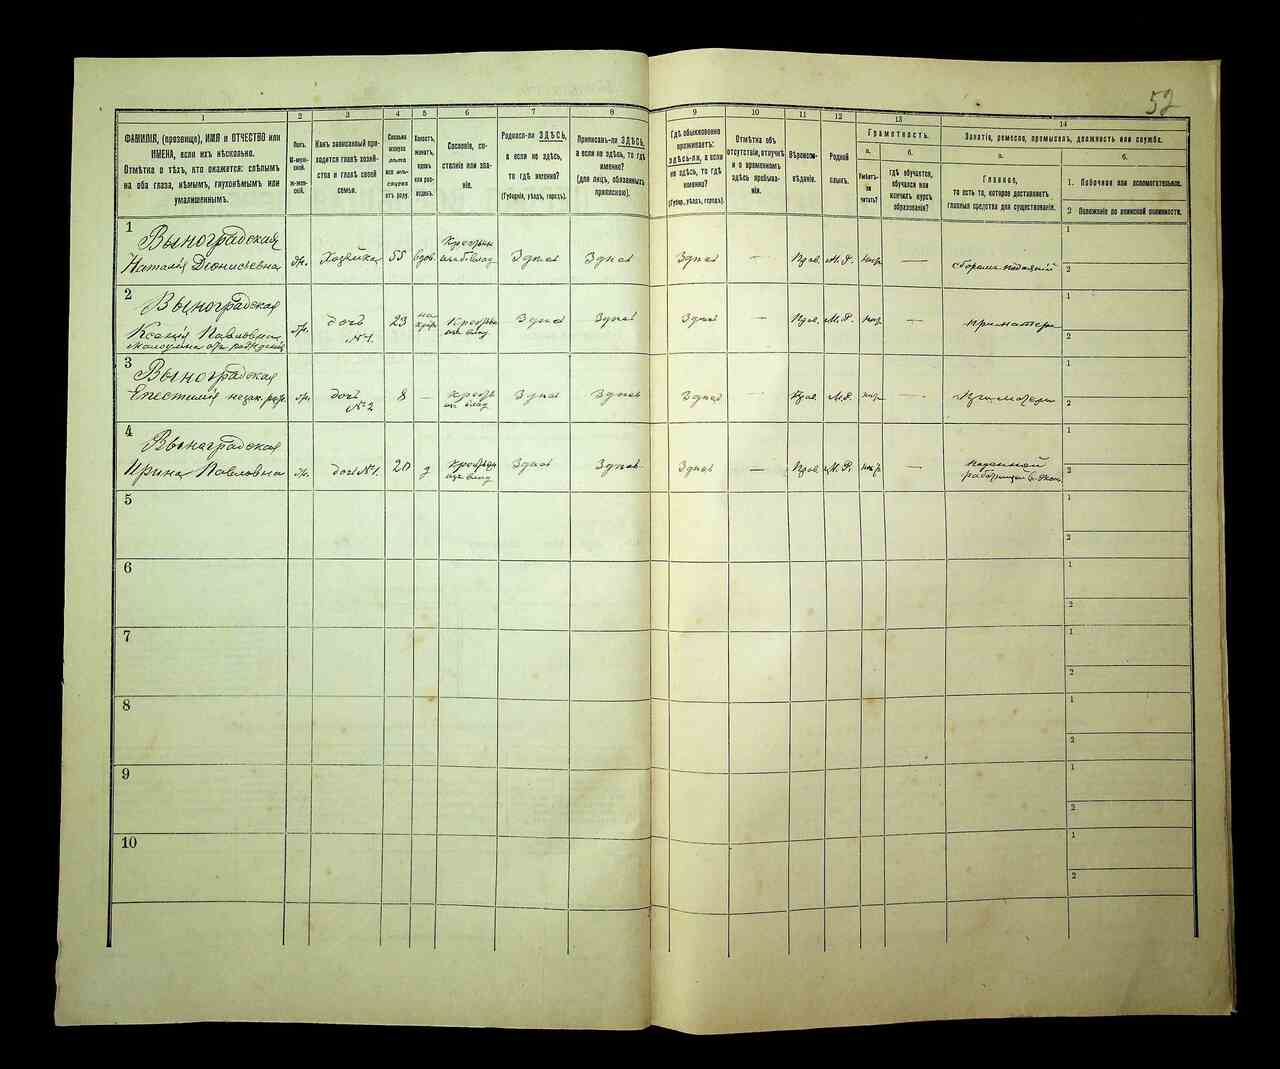 52
1 2 3 4 5 6 7 8 9 10 11 12 13 14
ФАМИЛІЯ, (прозвище), ИМЯ и ОТЧЕСТВО или
ИМЕНА, если ихъ нѣсколько.
Отмѣтка о тѣхъ, кто окажется: слѣпымъ
на оба глаза, нѣмымъ, глухонѣмымъ или
умалишеннымъ.
Полъ.
М-муж-
ской.
ж-жен-
скій.
Какъ записанный при-
ходится главѣ хозяй-
ства и главѣ своей
семьи.
Сколько
минуло
лѣтъ
или мѣ-
сяцевъ
отъ роду.
Холостъ,
женатъ,
вдовъ
или раз-
веденъ.
Сословіе, со-
стояніе или зва-
ніе.
Родился-ли ЗДѢСЬ,
а если не здѣсь,
то гдѣ именно?
(Губернія, уѣздъ, городъ).
Приписанъ-ли ЗДѢСЬ,
а если не здѣсь, то гдѣ
именно?
(для лицъ, обязанныхъ
припискою).
Гдѣ обыкновенно
проживаетъ:
ЗДѢСЬ-ЛИ, а если
не здѣсь, то гдѣ
именно?
(Губер., уѣздъ, городъ).
Отмѣтка объ
отсутствіи, отлучкѣ
и о временномъ
здѣсь пребыва-
ніи.
Вѣроиспо-
вѣданіе.
Родной
языкъ.
Грамотность.
а.
Умѣетъ-
ли
читать?
б.
Гдѣ обучается,
обучался или
кончилъ курсъ
образованія?
Занятіе, ремесло, промыселъ, должность или служба.
а.
Главное,
то есть то, которое доставляетъ
главныя средства для существованія.
б.
1. Побочное или вспомогательное.
2 Положеніе по воинской повинности.
1
Выноградская
Наталія Діонисьевна жн. Хозяйка 55 вдов. Здѣсь Здѣсь Здѣсь — Прав. М.Р. —
1
2
2
Выноградская
Ксенія Павловна жн. дочь №1. 23 Здѣсь Здѣсь Здѣсь — Прав. М.Р. — при матери
1
2
3
Выноградская
жн. дочь №2 8 — Здѣсь Здѣсь Здѣсь — Прав. М.Р. — При матери
1
2
4
Выноградская
Ирина Павловна жн. дочь №1. 20 Здѣсь Здѣсь Здѣсь — Прав. М.Р. —
1
2
5
1
2
6
1
2
7
1
2
8
1
2
9
1
2
10
1
2